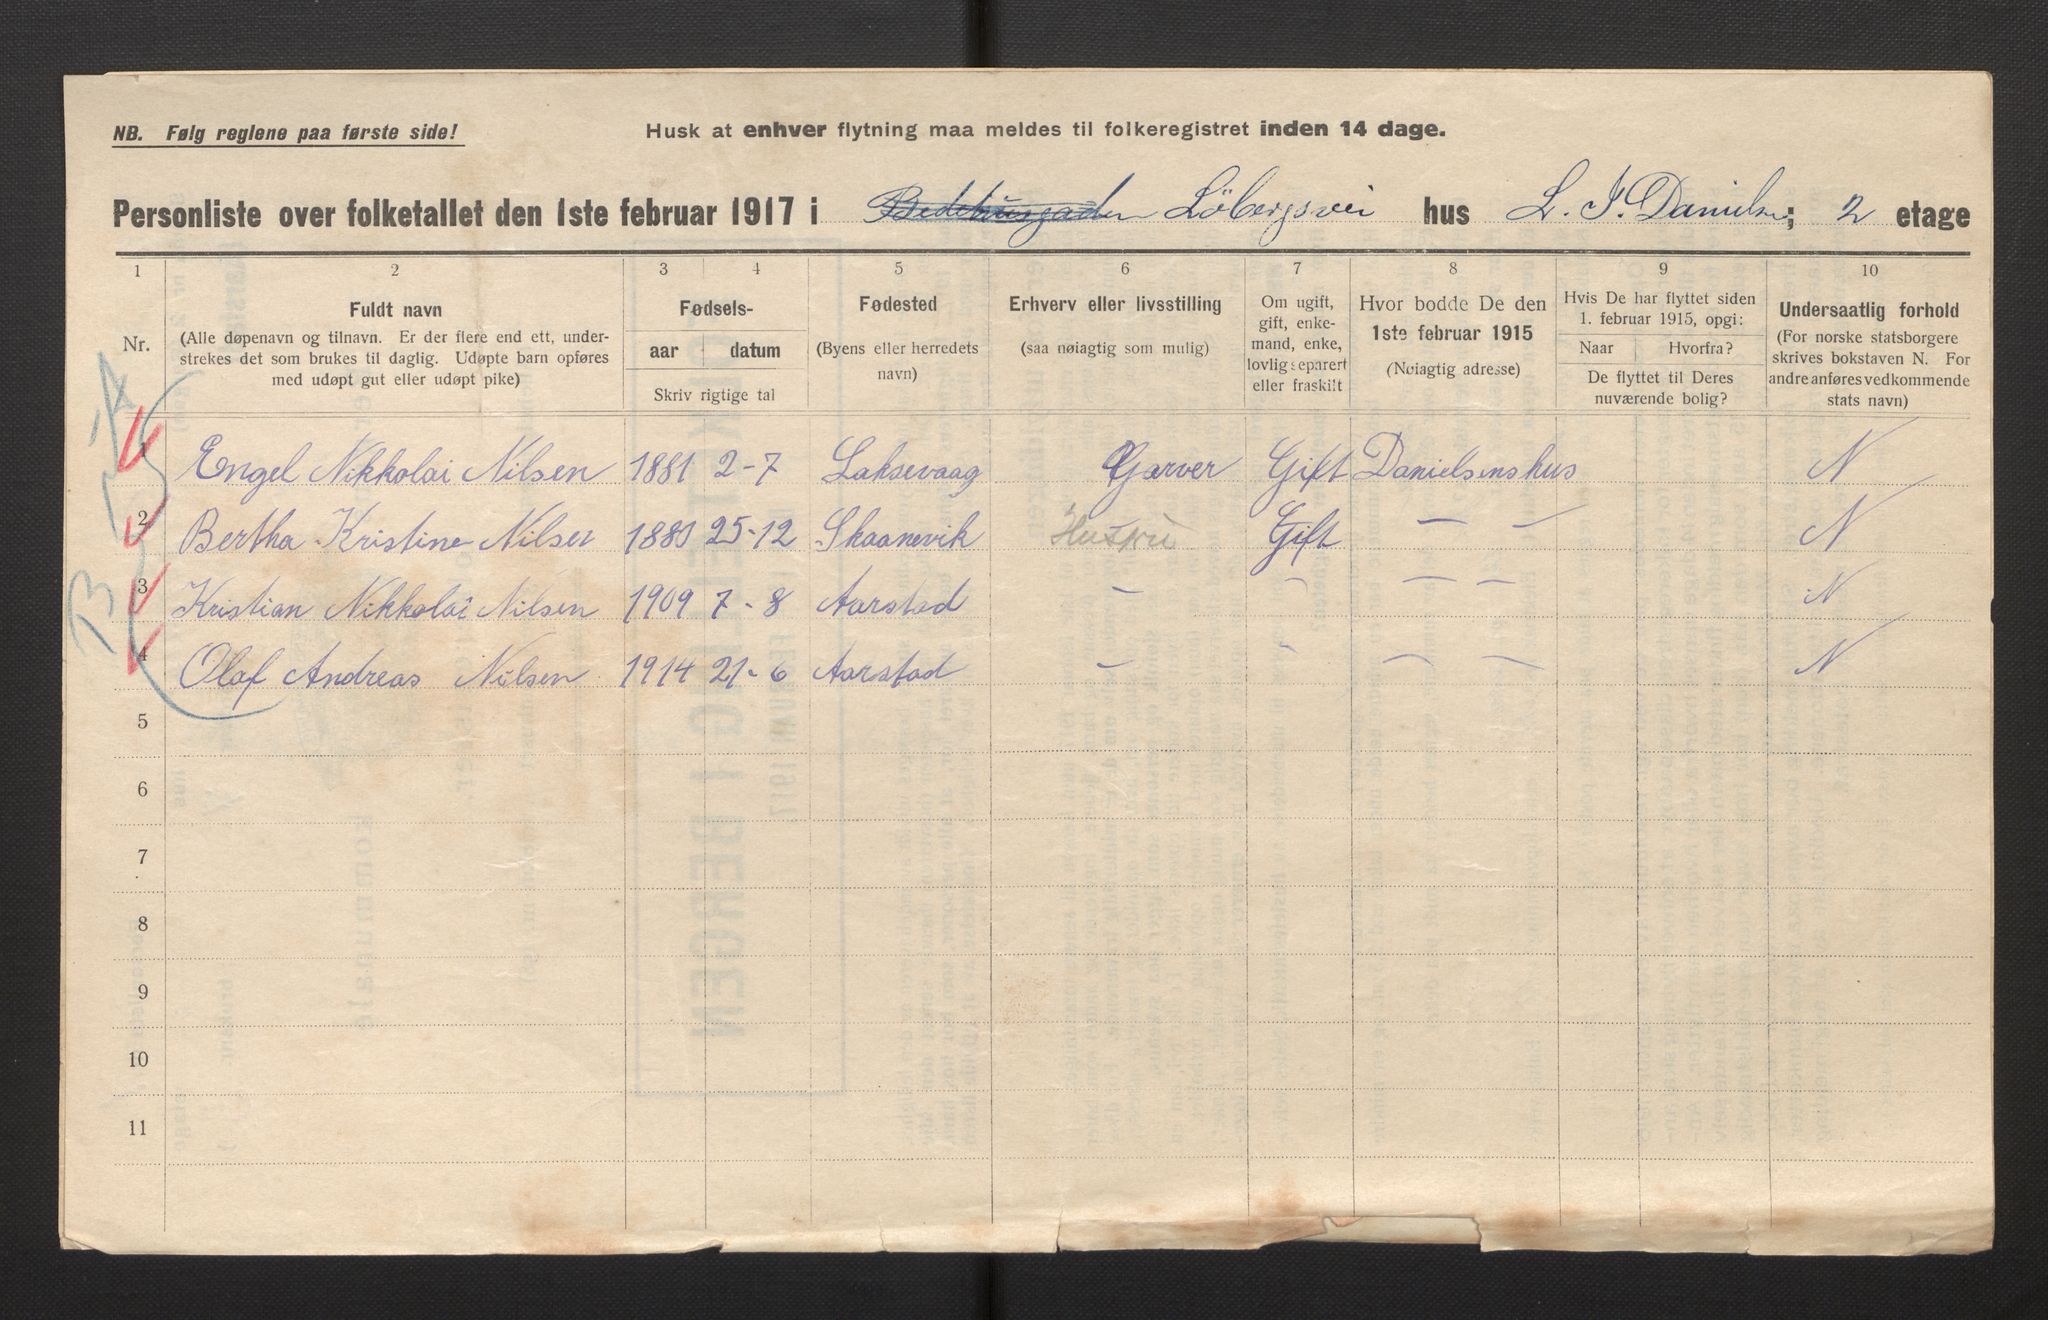 NB. Følg reglene paa første side!
Husk at enhver flytning maa meldes til folkeregistret inden 14 dage.
Personliste over folketallet den 1ste februar 1917 i Bedehusgaden Löbergsvei hus L. J. Danielsen; 2 etage
1 2 3 4 5 6 7 8 9 10
Nr.
Fuldt navn
(Alle døpenavn og tilnavn. Er der flere end ett, under-
strekes det som brukes til daglig. Udøpte barn opføres
med udøpt gut eller udøpt pike)
Fødsels-
aar datum
Skriv rigtige tal
Fødested
(Byens eller herredets
navn)
Erhverv eller livsstilling
(saa nøiagtig som mulig)
Om ugift,
gift, enke-
mand, enke,
lovlig separert
eller fraskilt
Hvor bodde De den
1ste februar 1915
(Nøiagtig adresse)
Hvis De har flyttet siden
1. februar 1915, opgi:
Naar Hvorfra?
De flyttet til Deres
nuværende bolig?
Undersaatlig forhold
(For norske statsborgere
skrives bokstaven N. For
andre anføres vedkommende
stats navn)
1 Engel Nikkolai Nilsen 1881 2-7 Laksevaag Garver Gift Danielsens hus N
2 Bertha Kristine Nilsen 25-12 Skaanevik Hustru Gift — — N
3 Kristian Nikkolai Nilsen 1909 7-8 Aarstad — - — — N
4 Olaf Andreas Nilsen 1914 21-6 Aarstad — - — — N
5
6
7
8
9
10
11